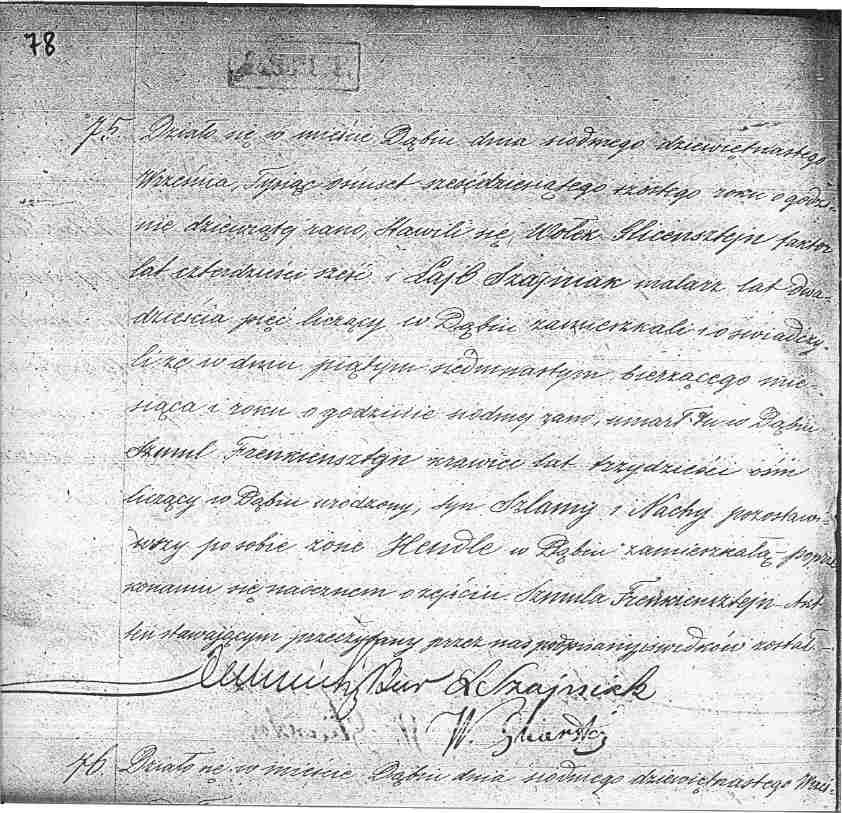 78
75. Działo się w mieście Dąbiu dnia siódmego dziewiętnastego
Września, Tysiąc ośmset sześćdziesiątego szóstego roku o godzi-
nie dziewiątej rano, Stawili się, Wolek Glicensztejn faktor
lat czterdzieści sześć i Lajb Szajniak malarz lat dwa-
dzieścia pięć liczący w Dąbiu zamieszkali i oświadczy-
li że w dniu piątym siedmnastym bieżącego mie-
siąca i roku o godzinie siódmej rano, umarł tu w Dąbiu
Szmul Frenkiensztejn krawiec lat trzydzieści ośm
liczący w Dąbiu urodzony, syn Szlamy i Nachy pozostawi-
wszy po sobie żonę Hendle w Dąbiu zamieszkałą – po prze
konaniu się naocznem o zejściu Szmula Frenkiensztejn Akt
ten stawającym przeczytany przez nas podpisany świadków został. –
L Szajniak
W.
76. Działo się w mieście Dąbiu dnia siódmego dziewiętnastego Wrześ-